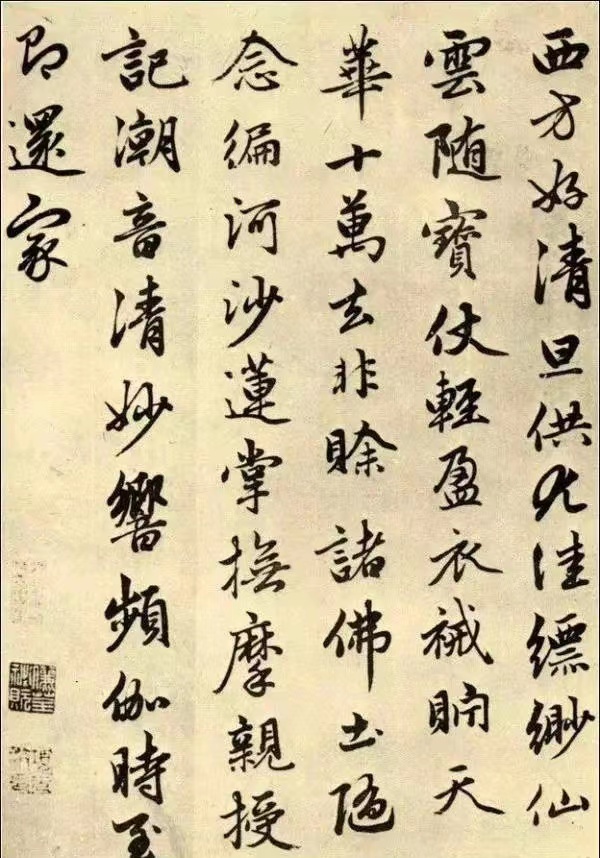 西方好清旦供尤佳縹緲仙
雲随寶仗輕盈衣裓貯天
華十萬去非賒諸佛土随
念徧河沙蓮掌撫摩親授
記潮音清妙響頻伽時至
即還家